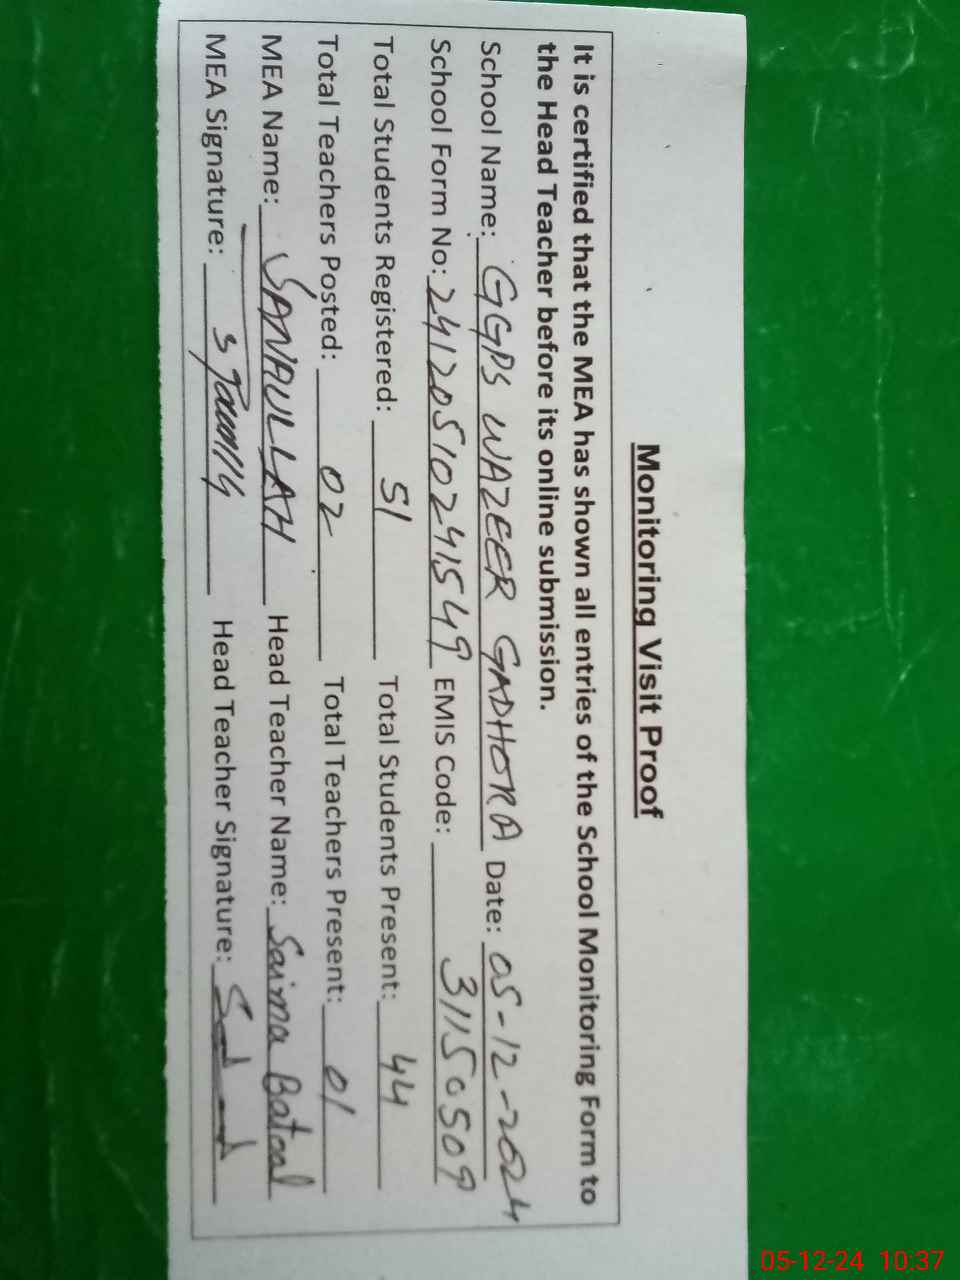 Monitoring Visit Proof
It is certified that the MEA has shown all entries of the School Monitoring Form to
the Head Teacher before its online submission.
School Name: GGPS WAZEER GADHORA Date: 05-12-2024
School Form No: 24120510241549 EMIS Code: 31150509
Total Students Registered: 51 Total Students Present: 44
Total Teachers Posted: 02 Total Teachers Present: 01
MEA Name: SANAULLAH Head Teacher Name: Saima Batool
MEA Signature: Head Teacher Signature:
05-12-24 10:37